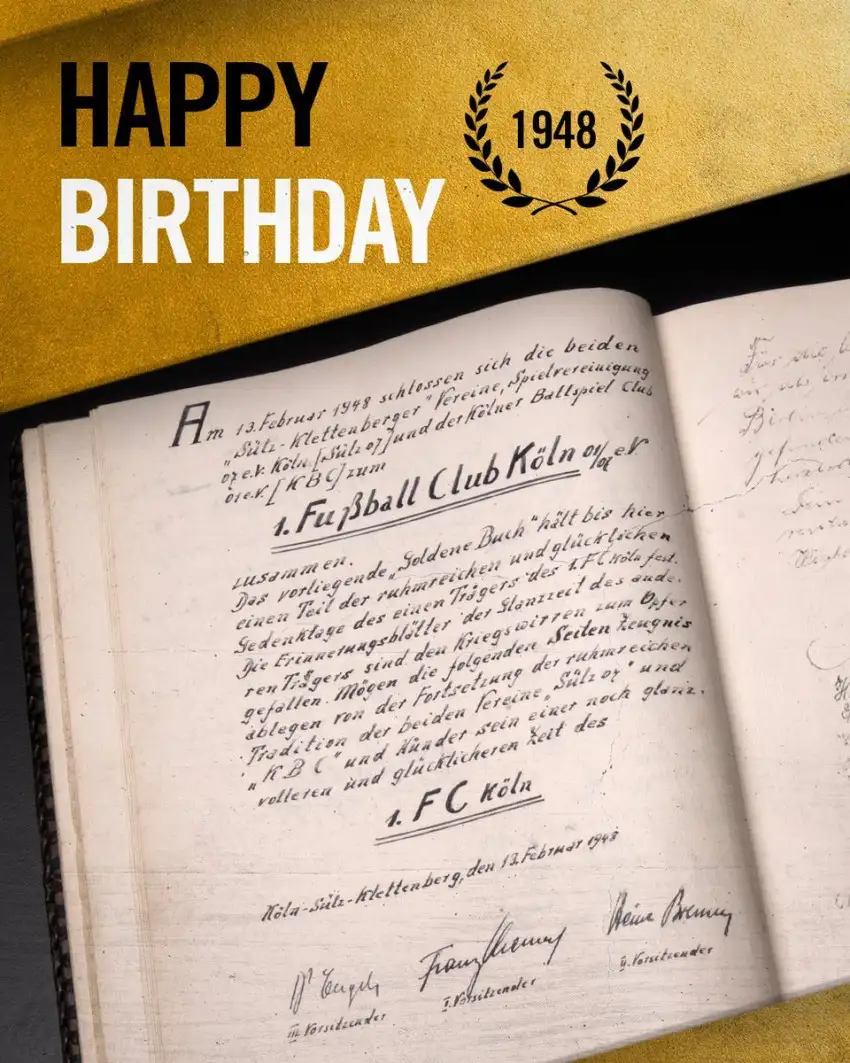 HAPPY
BIRTHDAY
1948
Am 13. Februar 1948 schlossen sich die beiden
"Sülz-Klettenberger" Vereine, Spielvereinigung
07 e.V. Köln [Sülz 07] und der Kölner Ballspiel Club
01 e.V. [KBC] zum
1. Fußball Club Köln 01/07 e.V
zusammen.
Das vorliegende "Goldene Buch" hält bis hier
einen Teil der ruhmreichen und glücklichen
Gedenktage des einen Trägers des 1. FC Köln fest.
Die Erinnerungsblätter der Glanzzeit des ande-
ren Trägers sind den Kriegswirren zum Opfer
gefallen. Mögen die folgenden Seiten Zeugnis
ablegen von der Fortsetzung der ruhmreichen
Tradition der beiden Vereine "Sülz 07" und
"KBC" und Künder sein einer noch glanz-
volleren und glücklicheren Zeit des
1. FC Köln
Köln-Sülz-Klettenberg, den 13. Februar 1948
Franz
III. Vorsitzender
I. Vorsitzender
II. Vorsitzender
Für die